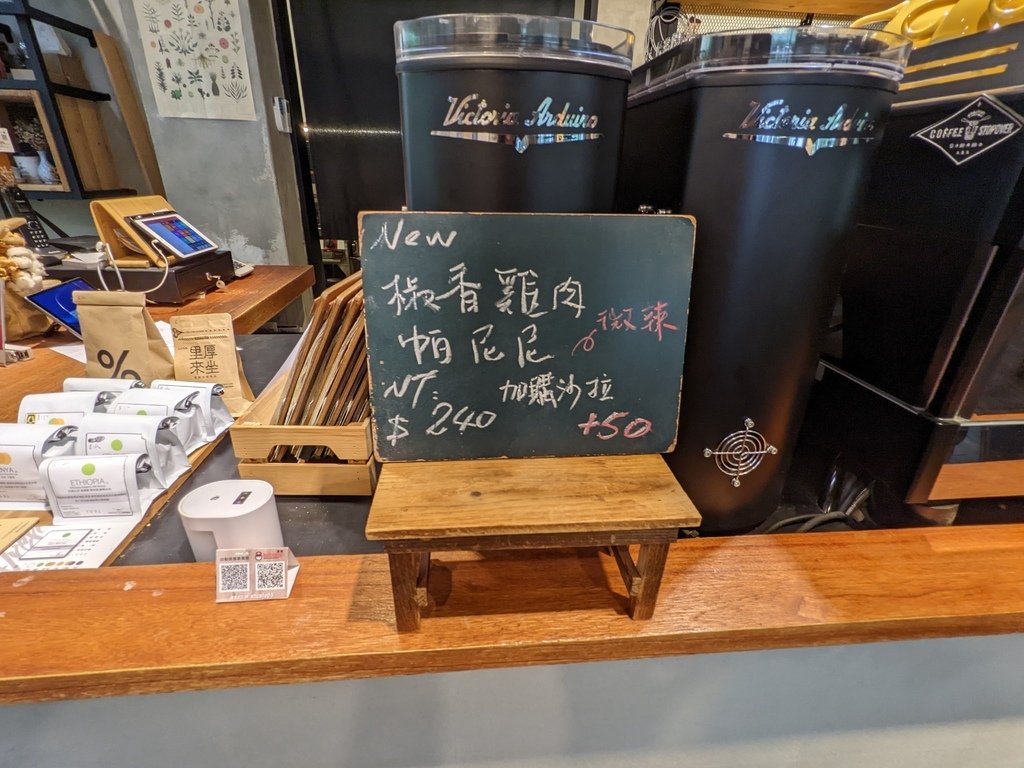 Victoria Arduino
Victoria Arduino
COFFEE STOPOVER
New
椒香雞肉
帕尼尼
微辣
NT.
$ 240
加購沙拉
+50
%
里厚
來坐
NYA
ETHIOPIA